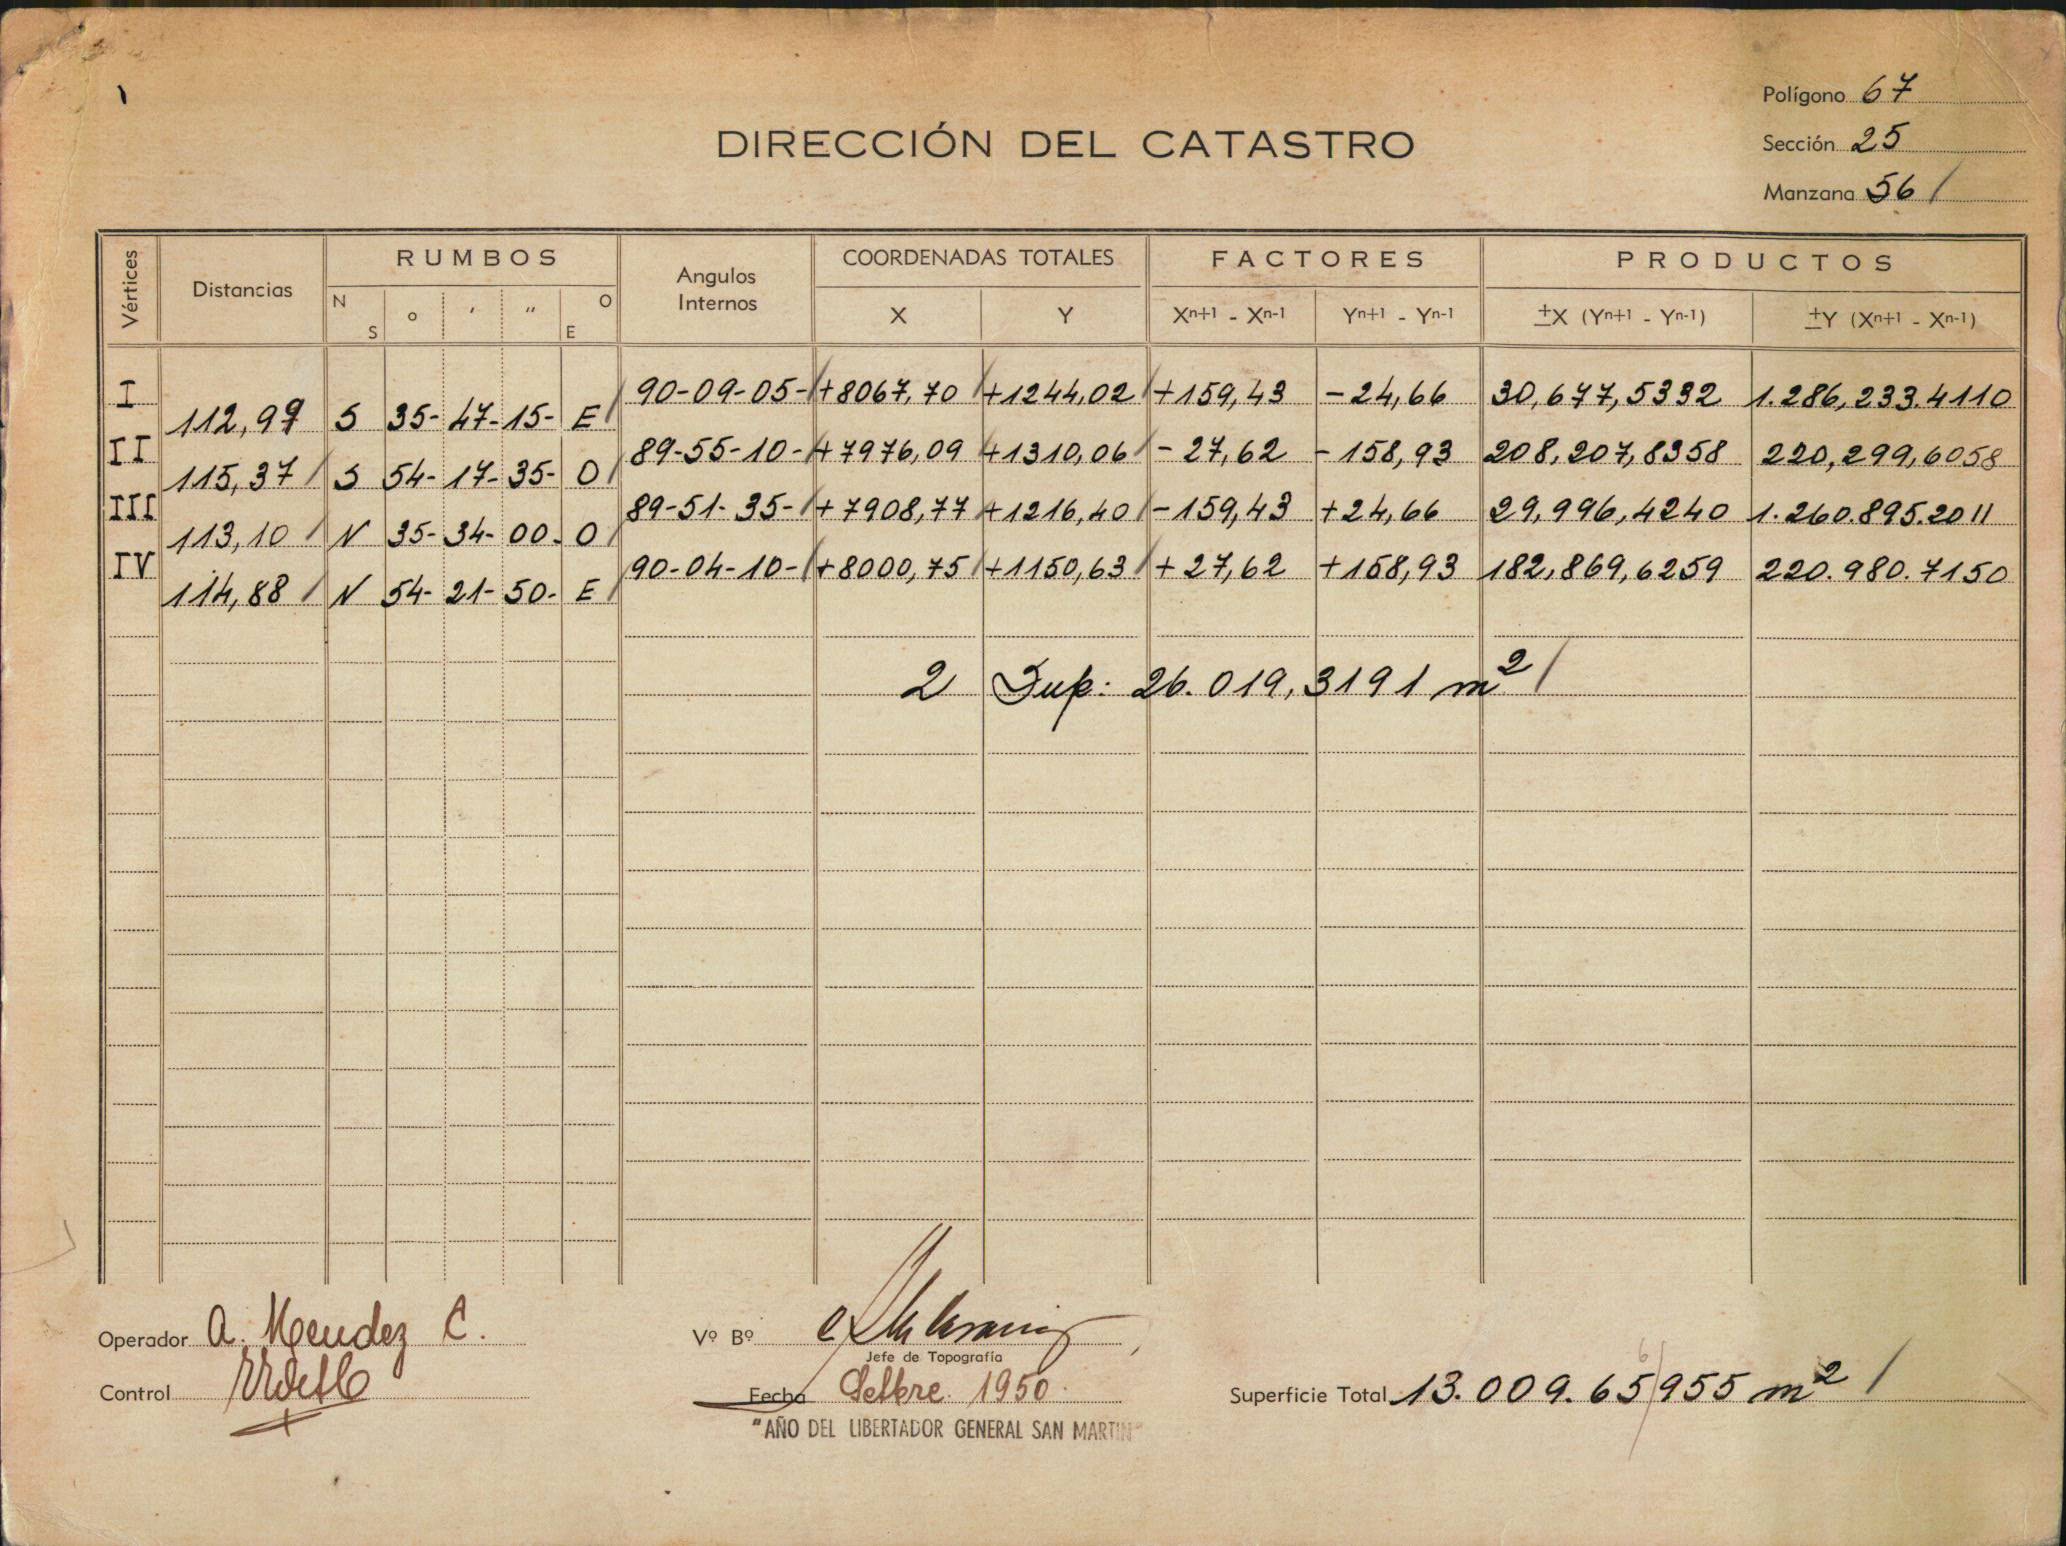 Polígono 67
DIRECCIÓN DEL CATASTRO
Sección 25
Manzana 56 /
Vértices Distancias RUMBOS Angulos Internos COORDENADAS TOTALES FACTORES PRODUCTOS
N S o ' " O E X Y Xn+1 - Xn-1 Yn+1 - Yn-1 ±X (Yn+1 - Yn-1) ±Y (Xn+1 - Xn-1)
I 90-09-05- +8067,70 +1244,02 +159,43 -24,66 30,677,5332 1.286,233.4110
112,97 S 35- 47- 15- E
II 89-55-10- +7976,09 +1310,06 -27,62 -158,93 208,207,8358 220,299,6058
115,37 S 54- 17- 35- O
III 89-51-35- +7908,77 +1216,40 -159,43 +24,66 29,996,4240 1.260.895.2011
113,10 N 35- 34- 00- O
IV 90-04-10- +8000,75 +1150,63 +27,62 +158,93 182,869,6259 220.980.7150
114,88 N 54- 21- 50- E
2 Sup: 26.019,3191 m² /
Operador A. Mendez C.
Vº Bº
Jefe de Topografía
Control
Fecha Setbre. 1950.
Superficie Total 13.009.65955 m² /
"AÑO DEL LIBERTADOR GENERAL SAN MARTIN"